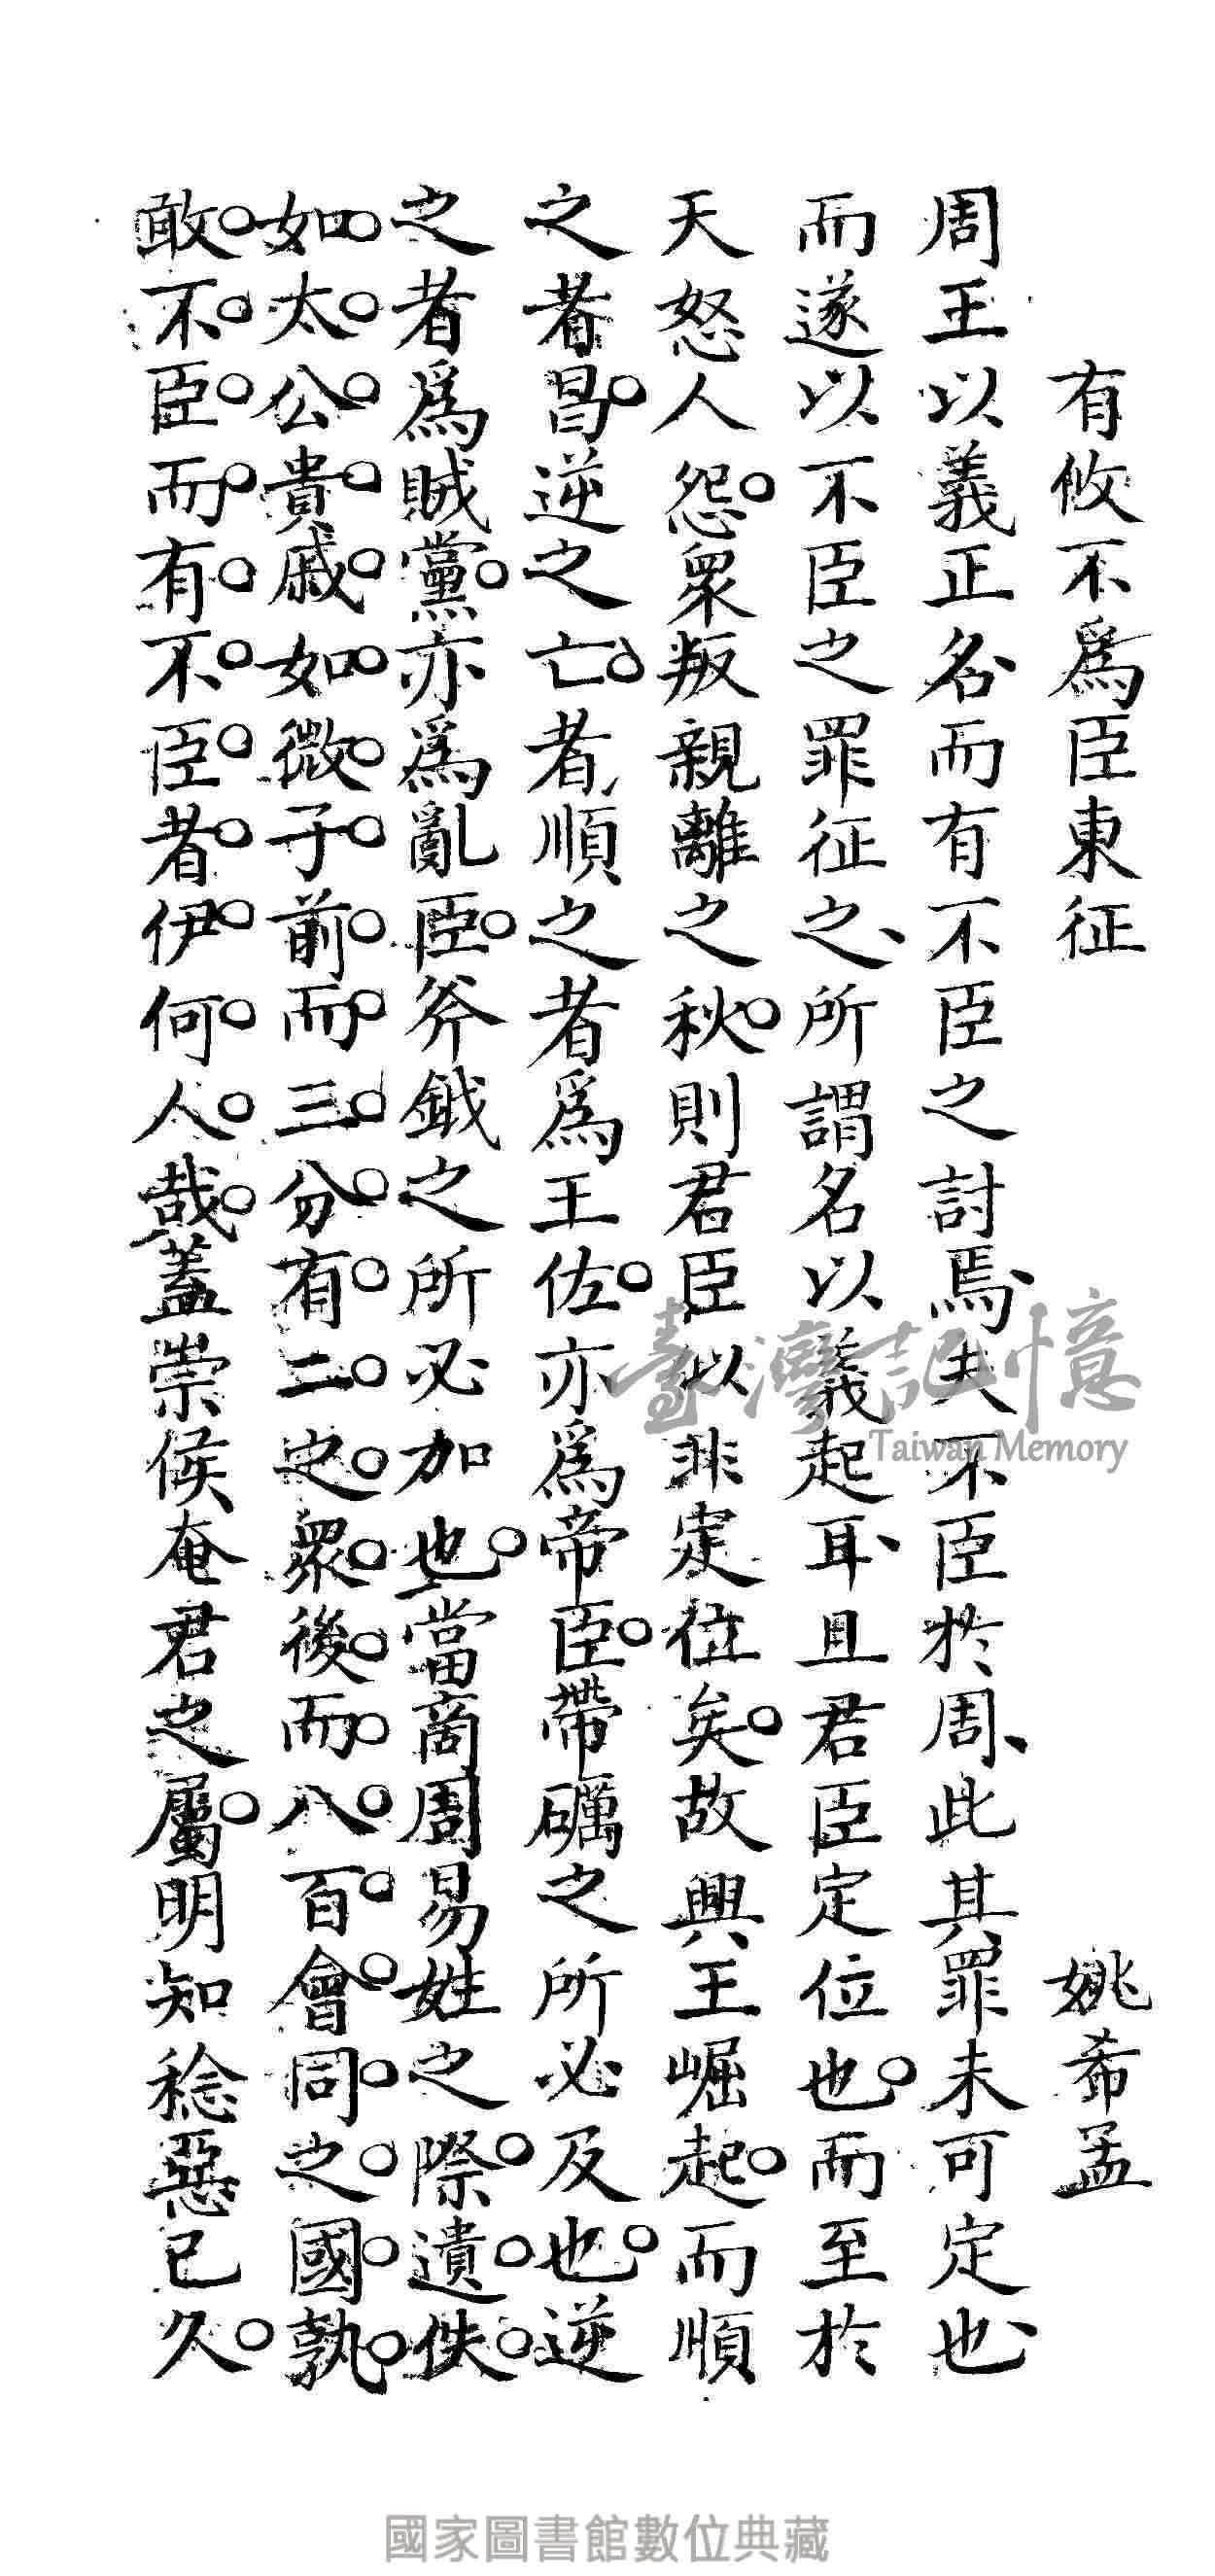 有攸不為臣東征 姚希孟
周王以義正名而有不臣之討焉夫不臣於周此其罪未可定也
而遂以不臣之罪征之所謂名以義起耳且君臣定位也而至於
天怒人怨眾叛親離之秋則君臣似非定位矣故興王崛起而順
之者昌逆之亡者順之者為王佐亦為帝臣帶礪之所必及也逆
之者為賊黨亦為亂臣斧鉞之所必加也當商周易姓之際遺佚
如太公貴戚如微子前而三分有二之眾後而八百會同之國孰
敢不臣而有不臣者伊何人哉蓋崇侯奄君之屬明知稔惡已久
臺灣記憶
Taiwan Memory
國家圖書館數位典藏